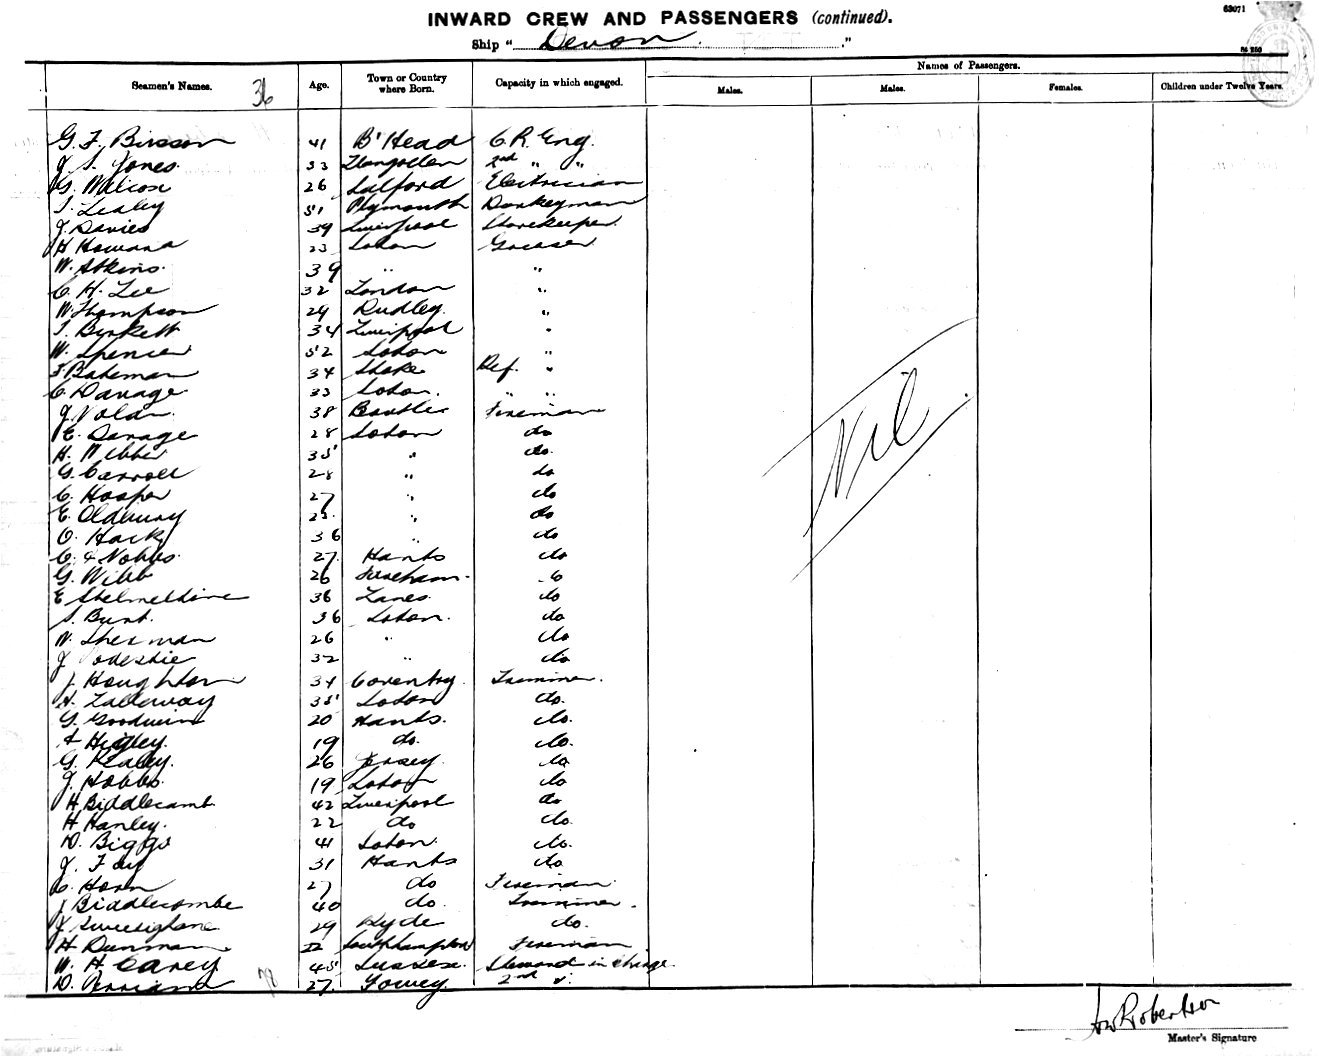 63071
INWARD CREW AND PASSENGERS (continued).
Ship " Devon ."
Seamen's Names. 36 Age. Town or Country where Born. Capacity in which engaged. Names of Passengers.
Males. Males. Females. Children under Twelve Years.
G. F. 41 B'Head C. R. Eng.
J. S. Jones 33 Llangollen 2nd " "
G. Wilcox 26 Salford Electrician
T. Lesley 51 Plymouth Donkeyman
J. Davies 39 Liverpool Storekeeper
H Howard 23 Soton Greaser
W. Atkins. 39 " "
C. H. Lee 32 London "
W. Thompson 29 Dudley. "
T. Birkett 34 Liverpool "
W. Spencer 52 Soton "
F. Bateman 34 Stoke Ref. "
C. Danage 33 Soton. " "
J. Nolan. 38 Bootle Fireman
E. Danage 28 Soton do
H. Webber 35 " do.
G. Carroll 28 " do
C. Hooper 27 " do
E. Oldbury " do
O. Hack 36 " do
C. & Nobbs. 27. Hants do
G. Wibb 26 Fareham. do
E 36 Lancs. do
S. Bunt. 36 Soton. do
W. Sherman 26 " do
J 32 " do
J. Houghton 34 Coventry. Trimmer.
H. Zalleway 35 Soton do.
G. Goodwin 20 Hants. do.
Higley. 19 do. do.
G. 26 Jersey. do
J. Hobbs. 19 Soton do
H. Biddlecomb. 42 Liverpool do
H Hanley. 22 do do.
D. Biggs 41 Soton. do.
J. Fay 31 Hants do.
C. Horn 27 do Fireman
J Biddlecombe 40 do. Trimmer.
J 29 Hyde do.
H Dunman Southampton Fireman
W. H. Carey 45 Sussex. Steward in charge.
D. 27. Fowey 2nd "
Nil
Robertson
Master's Signature